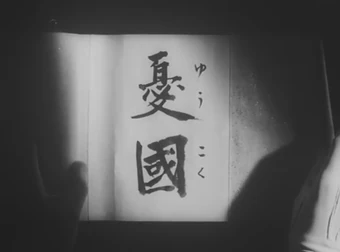 憂國
ゆうこく